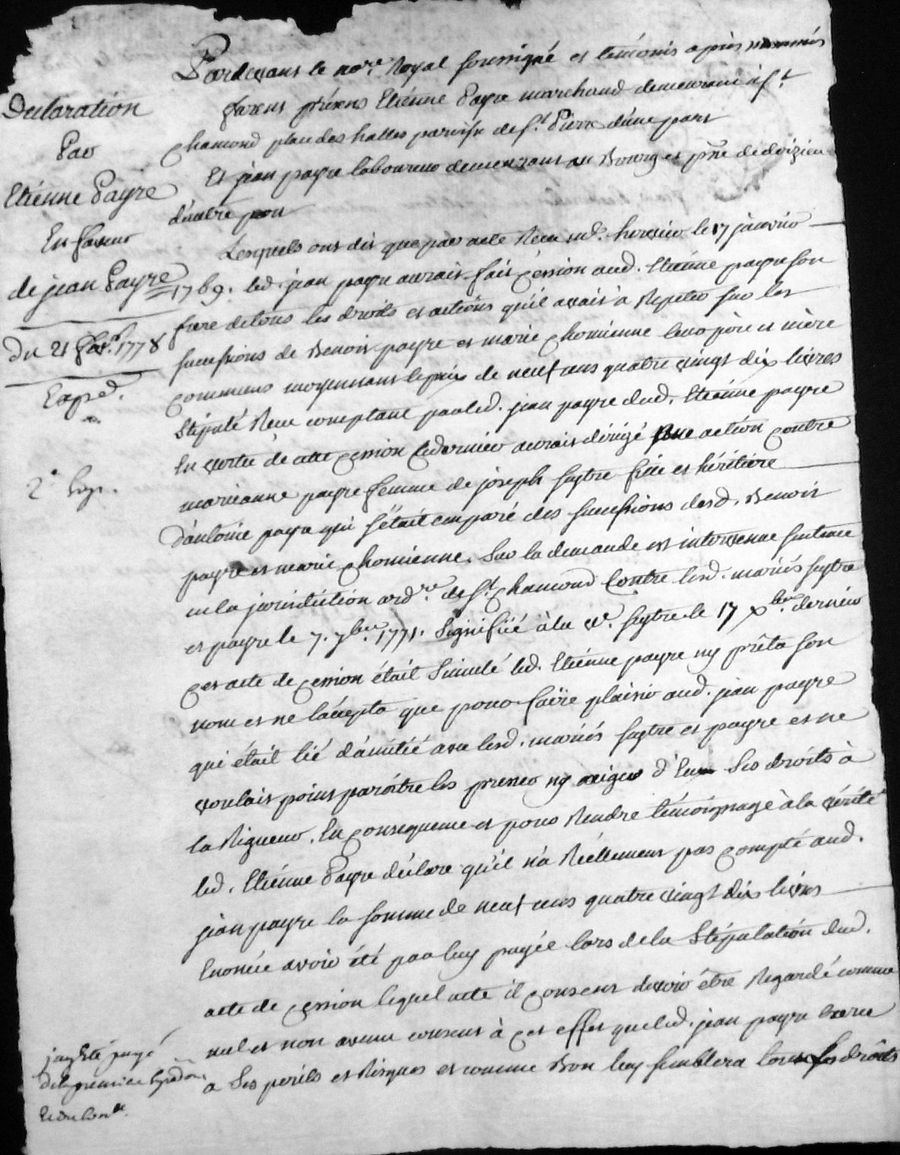 Declaration
Par
Etiénne Payre
En faveur
de jean Payre
Du 21 1778
Exped.
2.e Exp.
Pardevant le no.re Royal soussigné et témoins après nommés
furent présens Etiénne Payre marchand demeurant à S.t
chamond plan des halles paroisse de S.t Pierre d'une part
Et jean payre laboureur demeurant au Bourg et p.sse de doizieu
d'autre part
Lesquels ont dit que par acte Recu m.e hervier le 17 janvier
1769. led. jean payre aurait fait cession aud. Etiénne payre son
frere de tous les droits et actiôns qu'il avait à Repeter sur les
successions de Benoit payre et marie chomienne leur père et mère
communs moyennant le prix de neuf cens quatre vingt dix livres
Stipulé Recu comptant par led. jean payre dud. Etiénne payre
En vertu de cette cession ce dernier aurait dirigé une action contre
marianne payre femme de joseph Syttre fille et héritière
d'antoine payre qui s'était emparé des successions desd. Benoit
payre et marie chomienne. Sur la demande est intervenue sentence
en la jurisdiction ord.re de S.t chamond Contre lesd. mariés Syttre
et payre le 7. 7bre 1771. Signifiée à la v.e Syttre le 17 Xbre dernier
Cet acte de cession était Simulé led. Etiénne payre ny prêta son
nom et ne l'accepta que pour faire plaisir aud. jean payre
qui était lié d'amitié avec lesd. mariés Syttre et payre et ne
voulait point paroître les presser ny exiger d'Eux Ses droits à
la Rigueur. En consequence et pour Rendre témoignage à la vérité
led. Etiénne Payre déclare qu'il n'a Réellement pas compté aud.
jean payre la somme de neuf cens quatre vingt dix livres
Enoncée avoir été par luy payée lors de la Stipulation dud.
acte de cession lequel acte il consent devoir être Regardé comme
nul et non avenu consent à cet effet que led. jean payre Exerce
a Ses perils et Risques et comme Bon luy semblera tous ses droits
j'ay Eté payé
de la premiere Expedon.
Et du Con.lle